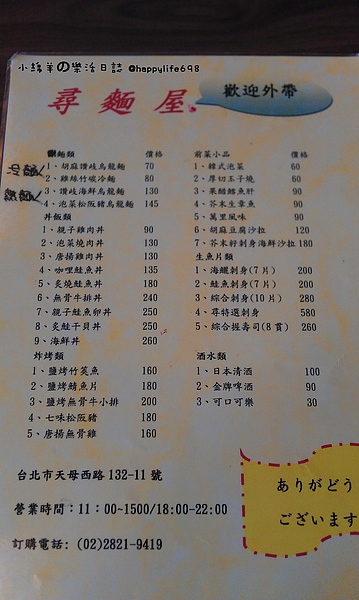 小綿羊の樂活日誌 @happylife698
尋麵屋
歡迎外帶
麵類 價格
冷麵
1、胡麻讚岐烏龍麵 70
2、雞絲竹碳冷麵 80
湯麵
3、讚岐海鮮烏龍麵 130
4、泡菜松阪豬烏龍麵 145
丼飯類
1、親子雞肉丼 90
2、泡菜燒肉丼 130
3、唐揚雞肉丼 130
4、咖哩鮭魚丼 135
5、炙燒鮭魚丼 180
6、無骨牛排丼 240
7、親子鮭魚卵丼 250
8、炙鮭干貝丼 250
9、海鮮丼 260
炸烤類
1、鹽烤竹莢魚 160
2、鹽烤鯖魚片 180
3、鹽烤無骨牛小排 200
4、七味松阪豬 180
5、唐揚無骨雞 160
前菜小品 價格
1、韓式泡菜 60
2、厚切玉子燒 60
3、果醋鱈魚肝 90
4、芥末生章魚 90
5、萬里風味 90
6、胡麻豆腐沙拉 120
7、芥末籽刺身海鮮沙拉 180
生魚片類
1、海鱺刺身(7片) 200
2、鮭魚刺身(7片) 200
3、綜合刺身(10片) 280
4、尋特選刺身 580
5、綜合握壽司(8貫) 260
酒水類
1、日本清酒 100
2、金牌啤酒 90
3、可口可樂 30
台北市天母西路132-11號
營業時間:11:00~1500/18:00-22:00
訂購電話: (02)2821-9419
ありがとう
ございます